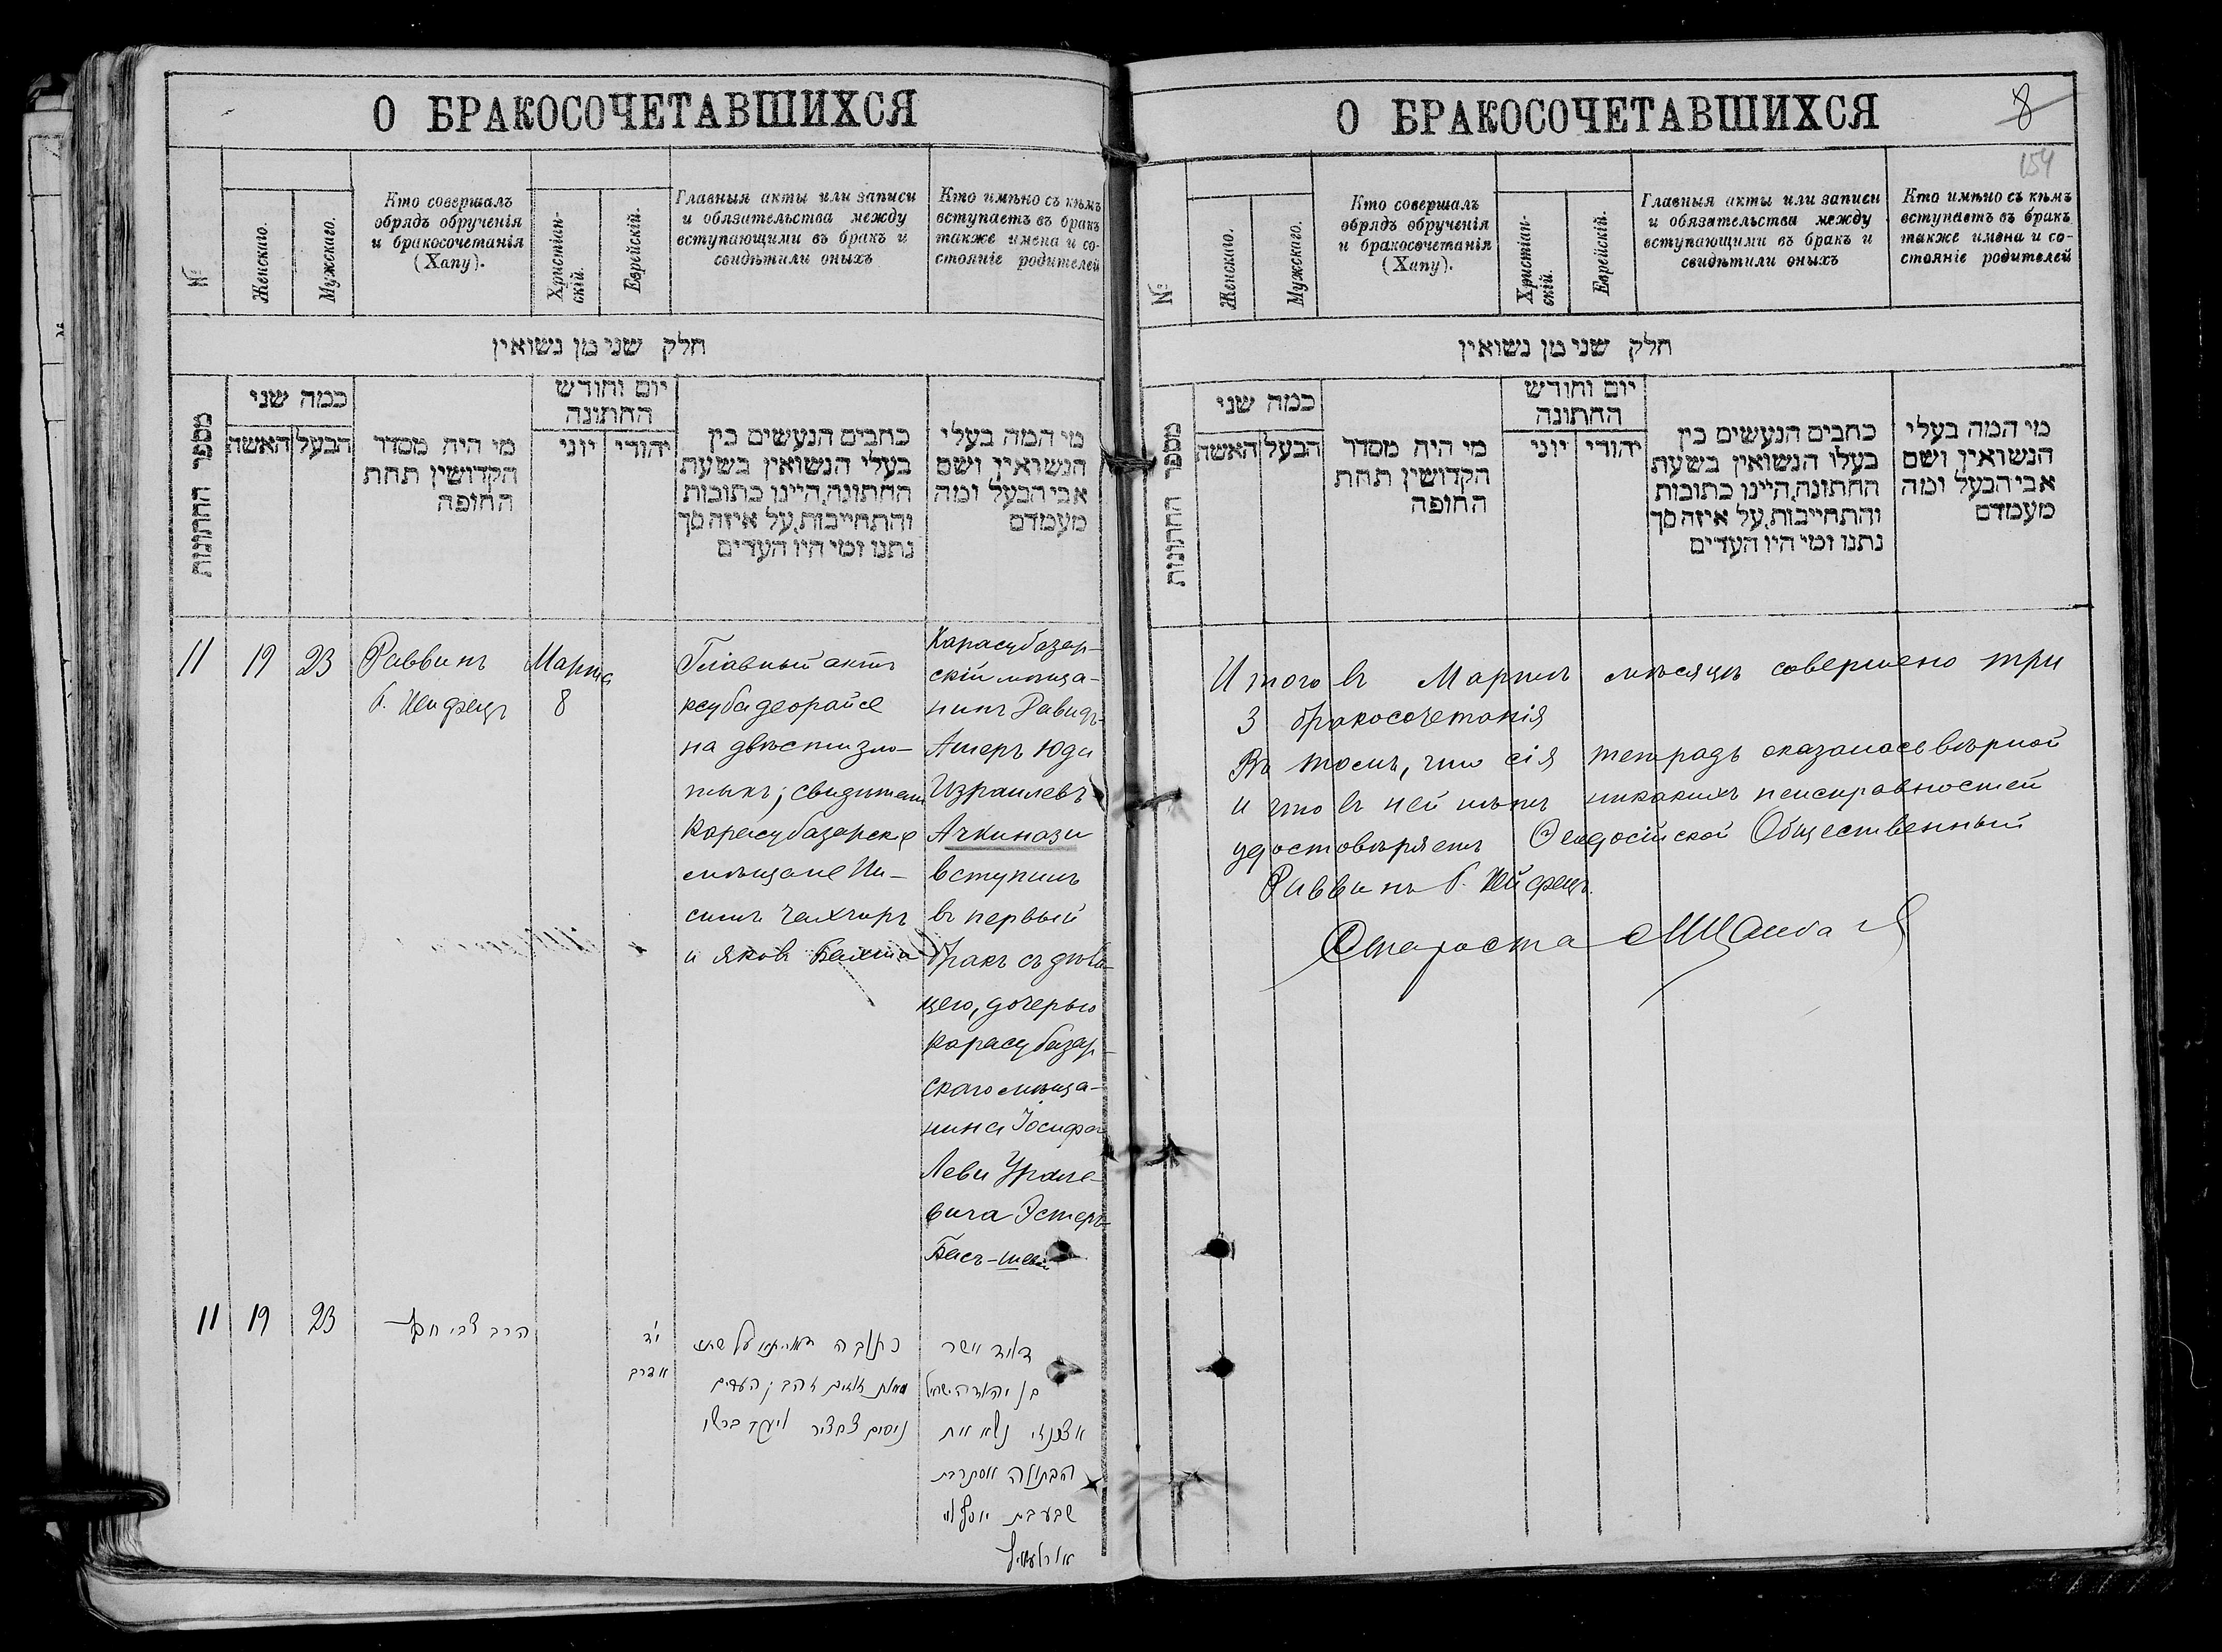 О БРАКОСОЧЕТАВШИХСЯ
№
Женскаго.
Мужскаго.
Кто совершалъ
обрядъ обрученія
и бракосочетанія
(Хапу).
Христіан-
скій.
Еврейскій.
Главныя акты или записи
и обязательства между
вступающими въ бракъ и
свидѣтили оныхъ
Кто имѣно съ кѣмъ
вступаетъ въ бракъ
также имена и со-
стояніе родителей
חלק שני מן נשואין
מספר החתונות
כמה שני
האשה
הבעל
מי היה מסדר
הקדושין תחת
החופה
יום וחודש
החתונה
יוני
יהודי
כתבים הנעשים בין
בעלי הנשואין בשעת
החתונה, היינו כתובות
והתחייבות, על איזה סך
נתנו ומי היו העדים
מי המה בעלי
הנשואין ושם
אבי הבעל ומה
מעמדם
11
19
23
Раввинъ
б. Хейфецъ
Марта
8
Главный актъ
ксуба деорайсе
на двѣсти зло-
тыхъ; свидѣтели
Карасубазарскіе
мѣщане Ни-
симъ Чахчиръ
и Яковъ
Карасубазар-
скій мѣща-
нинъ Давидъ-
Ашеръ Юда
Израилевъ
Ачкинази
вступилъ
въ первый
бракъ съ дѣви-
цею, дочерью
Карасубазар-
скаго мѣща-
нина Іосифа
Леви Урале-
вича Эстеръ-
Басъ-Шева
11
19
23
הרב צבי חפץ
י״ד
אדר ב
כתובה דאורייתא על שתי
מאות זוזים זהב; העדים
נסים צחציר ויעקב
דוד אשר
בן יהודה ישראל
אצכנזי נשא את
הבתולה אסתר בת
שבע בת יוסף לוי
О БРАКОСОЧЕТАВШИХСЯ
8
154
№
Женскаго.
Мужскаго.
Кто совершалъ
обрядъ обрученія
и бракосочетанія
(Хапу).
Христіан-
скій.
Еврейскій.
Главныя акты или записи
и обязательства между
вступающими въ бракъ и
свидѣтили оныхъ
Кто имѣно съ кѣмъ
вступаетъ въ бракъ
также имена и со-
стояніе родителей
חלק שני מן נשואין
מספר החתונות
כמה שני
האשה
הבעל
מי היה מסדר
הקדושין תחת
החופה
יום וחודש
החתונה
יוני
יהודי
כתבים הנעשים בין
בעלו הנשואין בשעת
החתונה, היינו כתובות
והתחייבות, על איזה סך
נתנו ומי היו העדים
מי המה בעלי
הנשואין ושם
אבי הבעל ומה
מעמדם
Итого въ Мартѣ мѣсяцѣ совершено три
3 бракосочетанія
Въ томъ, что сія тетрадь оказалась вѣрной
и что въ ней нѣтъ никакихъ неисправностей
удостовѣряетъ Ѳеодосійской Общественный
Раввинъ б. Хейфецъ.
Староста